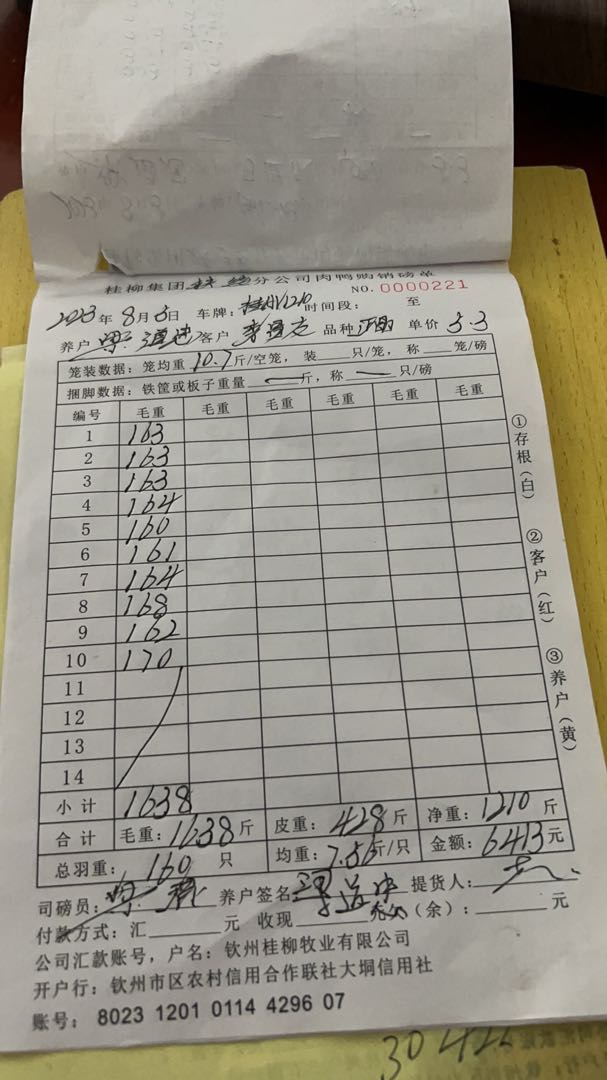 桂柳集团 分公司肉鸭购销磅单
NO. 0000221
2023年8月5日 车牌: 时间段: 至
养户 客户 品种 单价 5.3
笼装数据: 笼均重 10.7 斤/空笼, 装 只/笼, 称 笼/磅
捆脚数据: 铁筐或板子重量 斤, 称 只/磅
编号 毛重 毛重 毛重 毛重 毛重 毛重
1 163
2 163
3 163
4 164
5 160
6 161
7 164
8 168
9 162
10 170
11
12
13
14
小计 1638
合计 毛重: 1638 斤 皮重: 428 斤 净重: 1210 斤
总羽重: 160 只 均重: 7.56 斤/只 金额: 6413 元
司磅员: 养户签名 提货人:
付款方式: 汇 元 收现 (余): 元
公司汇款账号, 户名: 钦州桂柳牧业有限公司
开户行: 钦州市区农村信用合作联社大垌信用社
账号: 8023 1201 0114 4296 07
①存根(白)
②客户(红)
③养户(黄)